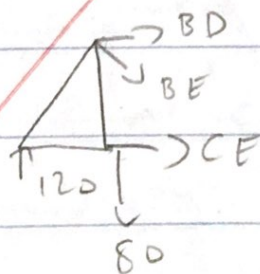 BD
BE
CE
120
80